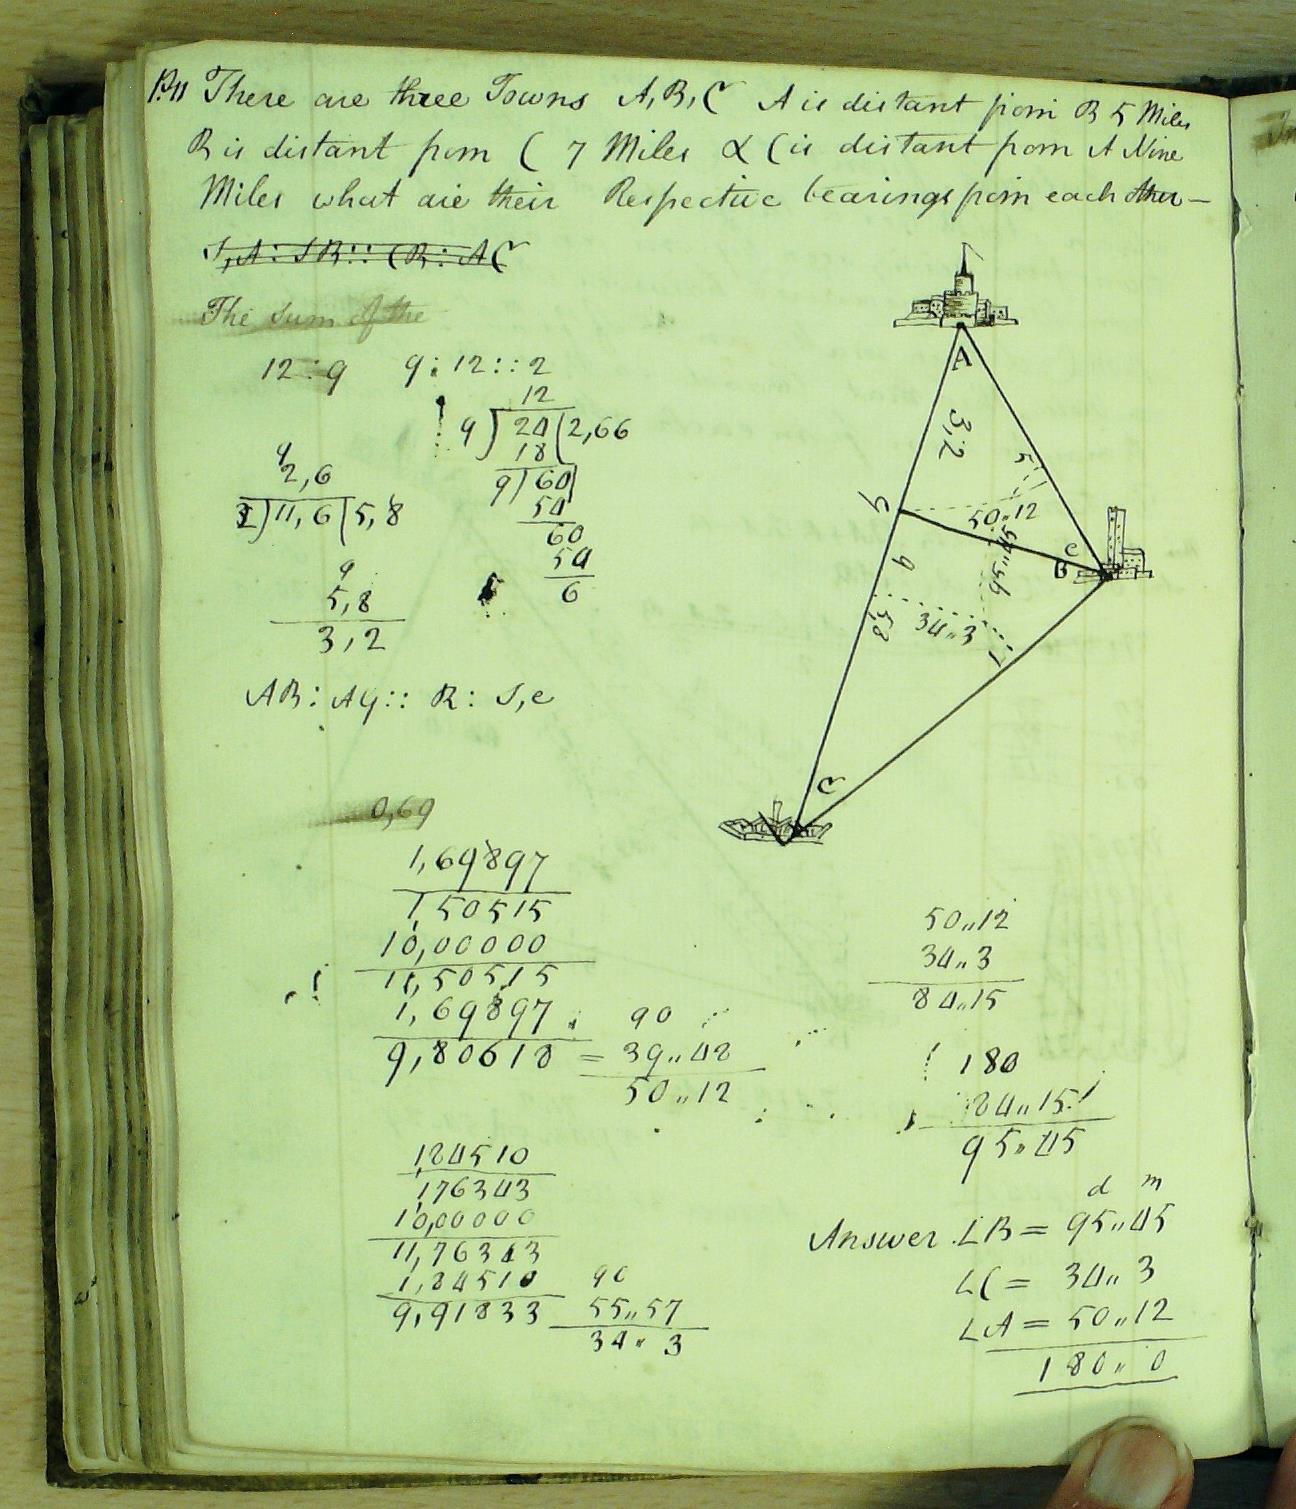 There are three Towns A, B, C A is distant from B 5 Miles
B is distant from C 7 Miles & C is distant from A Nine
Miles what are their Respective bearings from each other—
S,A : S B :: CB : AC
The sum of the
12 : 9 9 : 12 :: 2
12
9) 24 (2,66
18
9) 60
54
60
54
6
9
2,6
2) 11,6 (5,8
9
5,8
3,2
AB : AG :: R : S,e
0,69
1,69897
1,50515
10,00000
11,50515
1,69897
9,80618 = 39,,48
90
50,,12
1,84510
1,76343
10,00000
11,76343
1,84510
9,91833
90
55,,57
34,,3
A
3,2
5
G
50,,12
e
B
9
5,8
34,,3
55,,56
7
C
50,,12
34,,3
84,,15
180
84,,15
95,,45
d m
Answer ∠B = 95,,45
∠C = 34,,3
∠A = 50,,12
180,,0